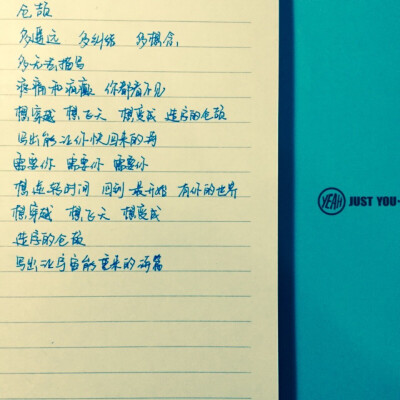 仓颉
多遥远 多纠结 多想念
多无法描写
疼痛和疯癫 你都看不见
想穿越 想飞天 想变成 造字的仓颉
写出能让你快回来的诗
需要你 需要你 需要你
想逆转时间 回到最开始 有你的世界
想穿越 想飞天 想变成
造字的仓颉
写出让宇宙能重来的诗篇
YEAH JUST YOU